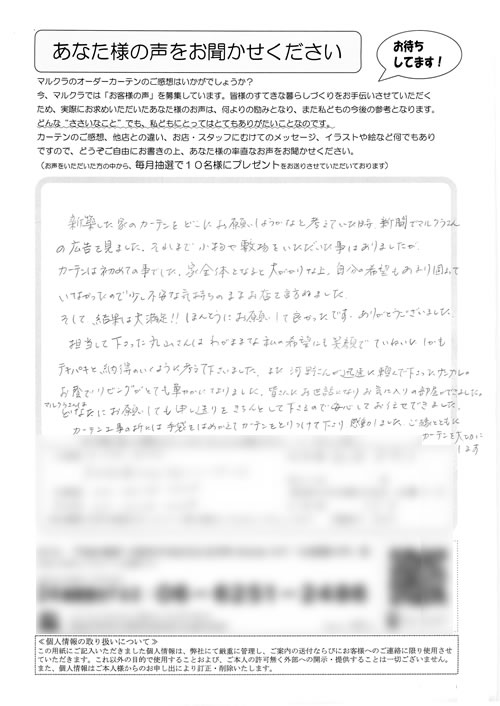 あなた様の声をお聞かせください
お待ち
してます!
マルクラのオーダーカーテンのご感想はいかがでしょうか?
今、マルクラでは「お客様の声」を募集しています。皆様のすてきな暮らしづくりをお手伝いさせていただく
ため、実際にお求めいただいたあなた様のお声は、何よりの励みとなり、また私どもの今後の参考となります。
どんな“ささいなこと”でも、私どもにとってはとてもありがたいことなのです。
カーテンのご感想、他店との違い、お店・スタッフにむけてのメッセージ、イラストや絵など何でもあり
ですので、どうぞご自由にお書きの上、あなた様の率直なお声をお聞かせください。
(お声をいただいた方の中から、毎月抽選で10名様にプレゼントをお送りさせていただいております)
新築した家のカーテンをどこにお願いしようかなと考えていた時 新聞でマルクラさん
の広告を見ました。それまで小物や敷物をいただいた事はありましたが、
カーテンは初めての事でした。家全体となると大がかりな上、自分の希望もあまり固まって
いなかったので少し不安な気持ちのままお店を訪ねました。
そして 結果は大満足!! ほんとうにお願いして良かったです。ありがとうございました。
担当して下さった丸山さんは わがままな私の希望にも笑顔でていねいに しかも
テキパキと納得のいくように考えて下さいました。また 河野さんが迅速に
お陰でリビングがとても華やかになりました。皆さんにお世話になりお気に入りの部屋ができました。
マルクラさんは
どなたにお願いしても申し送りをきちんとして下さるので安心してお任せできました。
カーテン工事の折には 手袋をはめかえてカーテンをとりつけて下さり 感動しました。ご縁とともに
カーテンを大切に
します
06-6251-2486
≪個人情報の取り扱いについて≫
この用紙にご記入いただきました個人情報は、弊社にて厳重に管理し、ご案内の送付ならびにお客様へのご連絡に限り使用させ
ていただきます。これ以外の目的で使用することおよび、ご本人の許可無く外部への開示・提供することは一切ございません。
また、個人情報はご本人様からのお申し出により訂正・削除いたします。